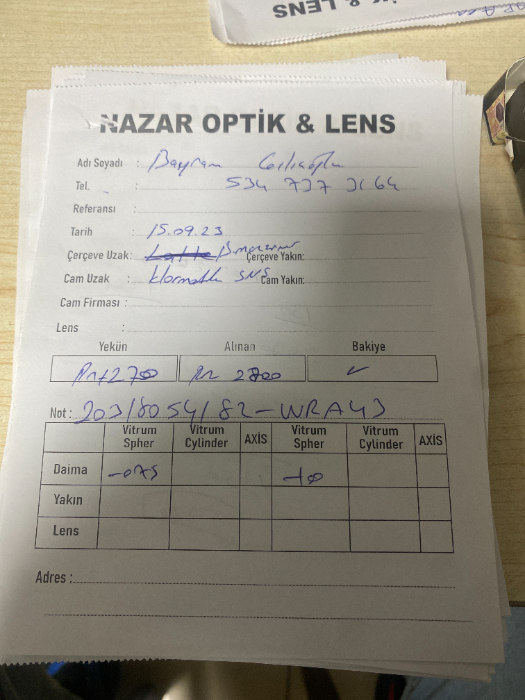 & LENS
NAZAR OPTİK & LENS
Adı Soyadı : Bayram
Tel. : 534 737 3164
Referansı :
Tarih : 15.09.23
Çerçeve Uzak: Çerçeve Yakın:
Cam Uzak : SNS Cam Yakın:
Cam Firması :
Lens :
Yekün Alınan Bakiye
2700 2800 ✓
Not : 203/8054/82-WRA43
Vitrum Spher Vitrum Cylinder AXİS Vitrum Spher Vitrum Cylinder AXİS
Daima -075
Yakın
Lens
Adres :